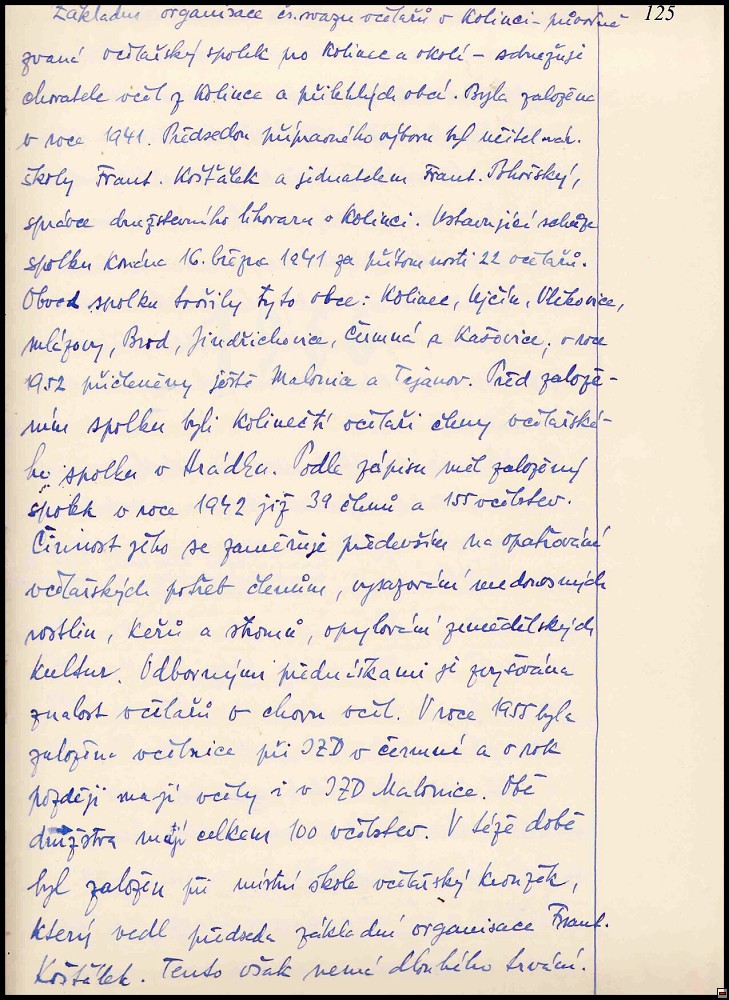 125
Základní organisace čs. svazu včelařů v Kolinci - původně
zvaná včelařský spolek pro Kolinec a okolí - sdružuje
chovatele včel z Kolince a přilehlých obcí. Byla založena
v roce 1941. Předsedou přípravného výboru byl učitel nár.
školy Frant. Košťálek a jednatelem Frant. Pohořský,
správce družstevního lihovaru v Kolinci. Ustavující schůze
spolku konána 16. března 1941 za přítomnosti 22 včelařů.
Obvod spolku tvořily tyto obce: Kolinec, Ujčín, Vlčkovice,
Mlázovy, Brod, Jindřichovice, Čermná a Kašovice, v roce
1952 přičleněny ještě Malonice a Tajanov. Před založe-
ním spolku byli kolinečtí včelaři členy včelařské-
ho spolku v Hrádku. Podle zápisu měl založený
spolek v roce 1942 již 39 členů a 155 včelstev.
Činnost jeho se zaměřuje především na opatřování
včelařských potřeb členům, vysazování medonosných
rostlin, keřů a stromů, opylování zemědělských
kultur. Odbornými přednáškami je zvyšována
znalost včelařů v chovu včel. V roce 1955 byla
založena včelnice při JZD v Čermné a o rok
později mají včely i v JZD Malonice. Obě
družstva mají celkem 100 včelstev. V téže době
byl založen při místní škole včelařský kroužek,
který vedl předseda základní organisace Frant.
Košťálek. Tento však nemá dlouhého trvání.